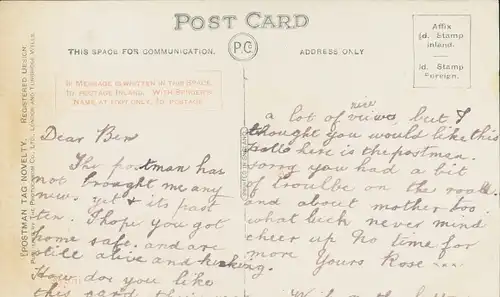 POST CARD
THIS SPACE FOR COMMUNICATION.
P.C.
ADDRESS ONLY
Affix
½d. Stamp
Inland.
1d. Stamp
Foreign.
IF MESSAGE IS WRITTEN IN THIS SPACE,
½D POSTAGE INLAND. WITH SENDER'S
NAME AT FOOT ONLY, ½D POSTAGE.
POSTMAN TAG NOVELTY. REGISTERED DESIGN.
LONDON AND TUNBRIDGE WELLS.
Dear Ben
The postman has
not brought me any
news yet & its past
ten. I hope you got
home safe. and are
still alive and kicking.
How do you like
this card
a lot of nice views but I
thought you would like this
here is the postman.
sorry you had a bit
of trouble on the road.
and about mother too.
what luck never mind
cheer up no time for
more Yours Rose